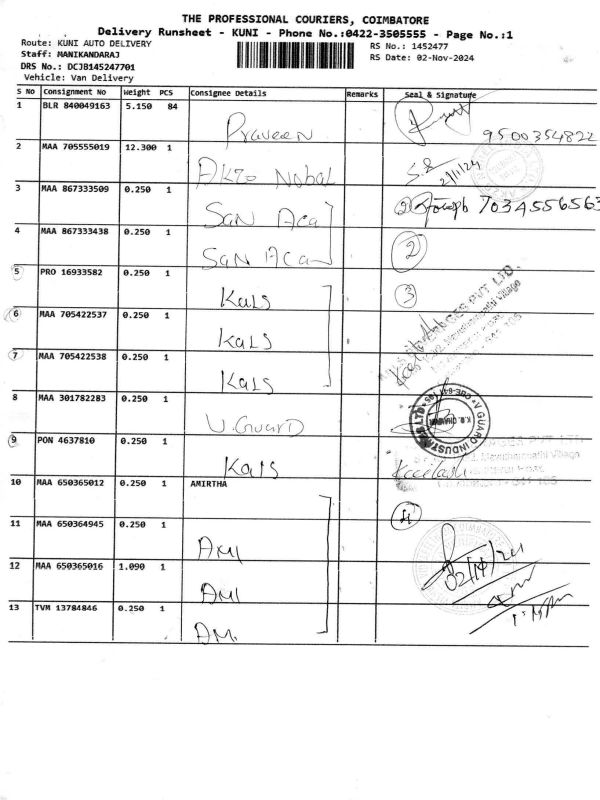 THE PROFESSIONAL COURIERS, COIMBATORE
Delivery Runsheet - KUNI - Phone No.:0422-3505555 - Page No.:1
Route: KUNI AUTO DELIVERY
Staff: MANIKANDARAJ
DRS No.: DCJB145247701
Vehicle: Van Delivery
RS No.: 1452477
RS Date: 02-Nov-2024
S No Consignment No Weight PCS Consignee Details Remarks Seal & Signature
1 BLR 840049163 5.150 84 Praveen 9500354822
2 MAA 705555019 12.300 1 Akzo Nobal 2/11/24
3 MAA 867333509 0.250 1 San Aca 2 7034556563
4 MAA 867333438 0.250 1 San Aca 2
5 PRO 16933582 0.250 1 Kals 3
6 MAA 705422537 0.250 1 Kals
7 MAA 705422538 0.250 1 Kals
8 MAA 301782283 0.250 1 V.Guard
9 PON 4637810 0.250 1 Kals
10 MAA 650365012 0.250 1 AMIRTHA 4
11 MAA 650364945 0.250 1 AMI
12 MAA 650365016 1.090 1 AMI 02/11/24
13 TVM 13784846 0.250 1 AM.